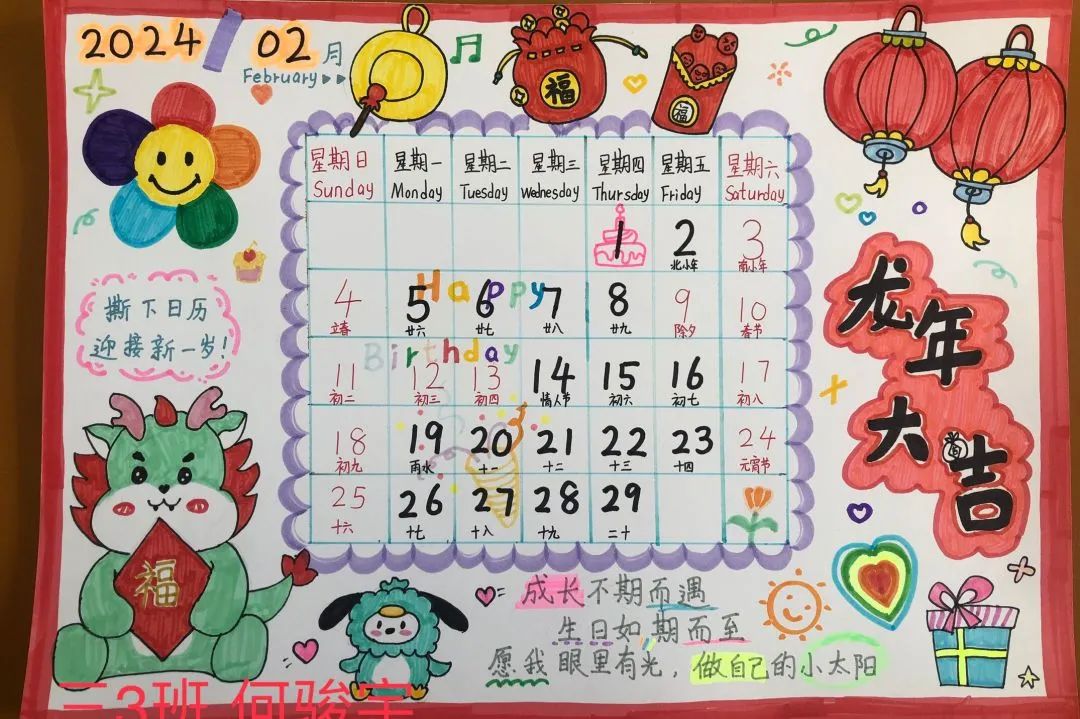 2024 02月
February
福
福
撕下日历
迎接新一岁！
星期日 星期一 星期二 星期三 星期四 星期五 星期六
Sunday Monday Tuesday Wednesday Thursday Friday Saturday
1 2 3
北小年 南小年
Happy
4 5 6 7 8 9 10
立春 廿六 廿七 廿八 廿九 除夕 春节
Birthday
11 12 13 14 15 16 17
初二 初三 初四 情人节 初六 初七 初八
18 19 20 21 22 23 24
初九 雨水 十一 十二 十三 十四 元宵节
25 26 27 28 29
十六 十七 十八 十九 二十
龙年
大吉
福
成长不期而遇
生日如期而至
愿我眼里有光，做自己的小太阳
三3班 何骏宇